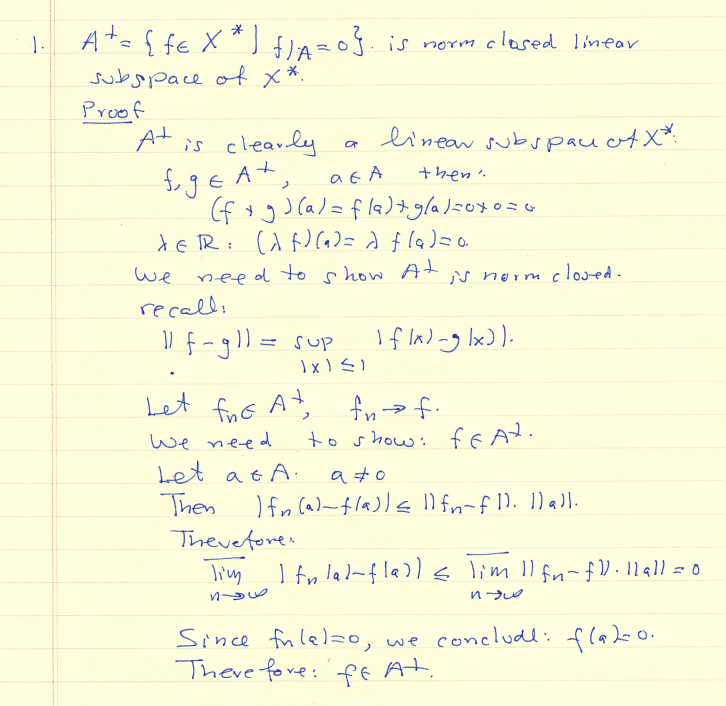 1. A⊥ = { f ∈ X* | f|A = 0}. is norm closed linear
subspace of X*.
Proof
A⊥ is clearly a linear subspace of X*:
f, g ∈ A⊥, a ∈ A then:
(f + g)(a) = f(a) + g(a) = 0 + 0 = 0
λ ∈ ℝ: (λf)(a) = λ f(a) = 0.
We need to show A⊥ is norm closed.
recall:
||f - g|| = sup |f(x) - g(x)|.
|x| ≤ 1
Let fn ∈ A⊥, fn → f.
We need to show: f ∈ A⊥.
Let a ∈ A: a ≠ 0
Then |fn(a) - f(a)| ≤ ||fn - f||. ||a||.
Therefore:
lim |fn(a) - f(a)| ≤ lim ||fn - f||. ||a|| = 0
n→∞ n→∞
Since fn(a) = 0, we conclude: f(a) = 0.
Therefore: f ∈ A⊥.